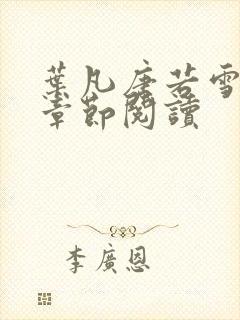 葉凡唐若雪
章節閱讀
李廣恩